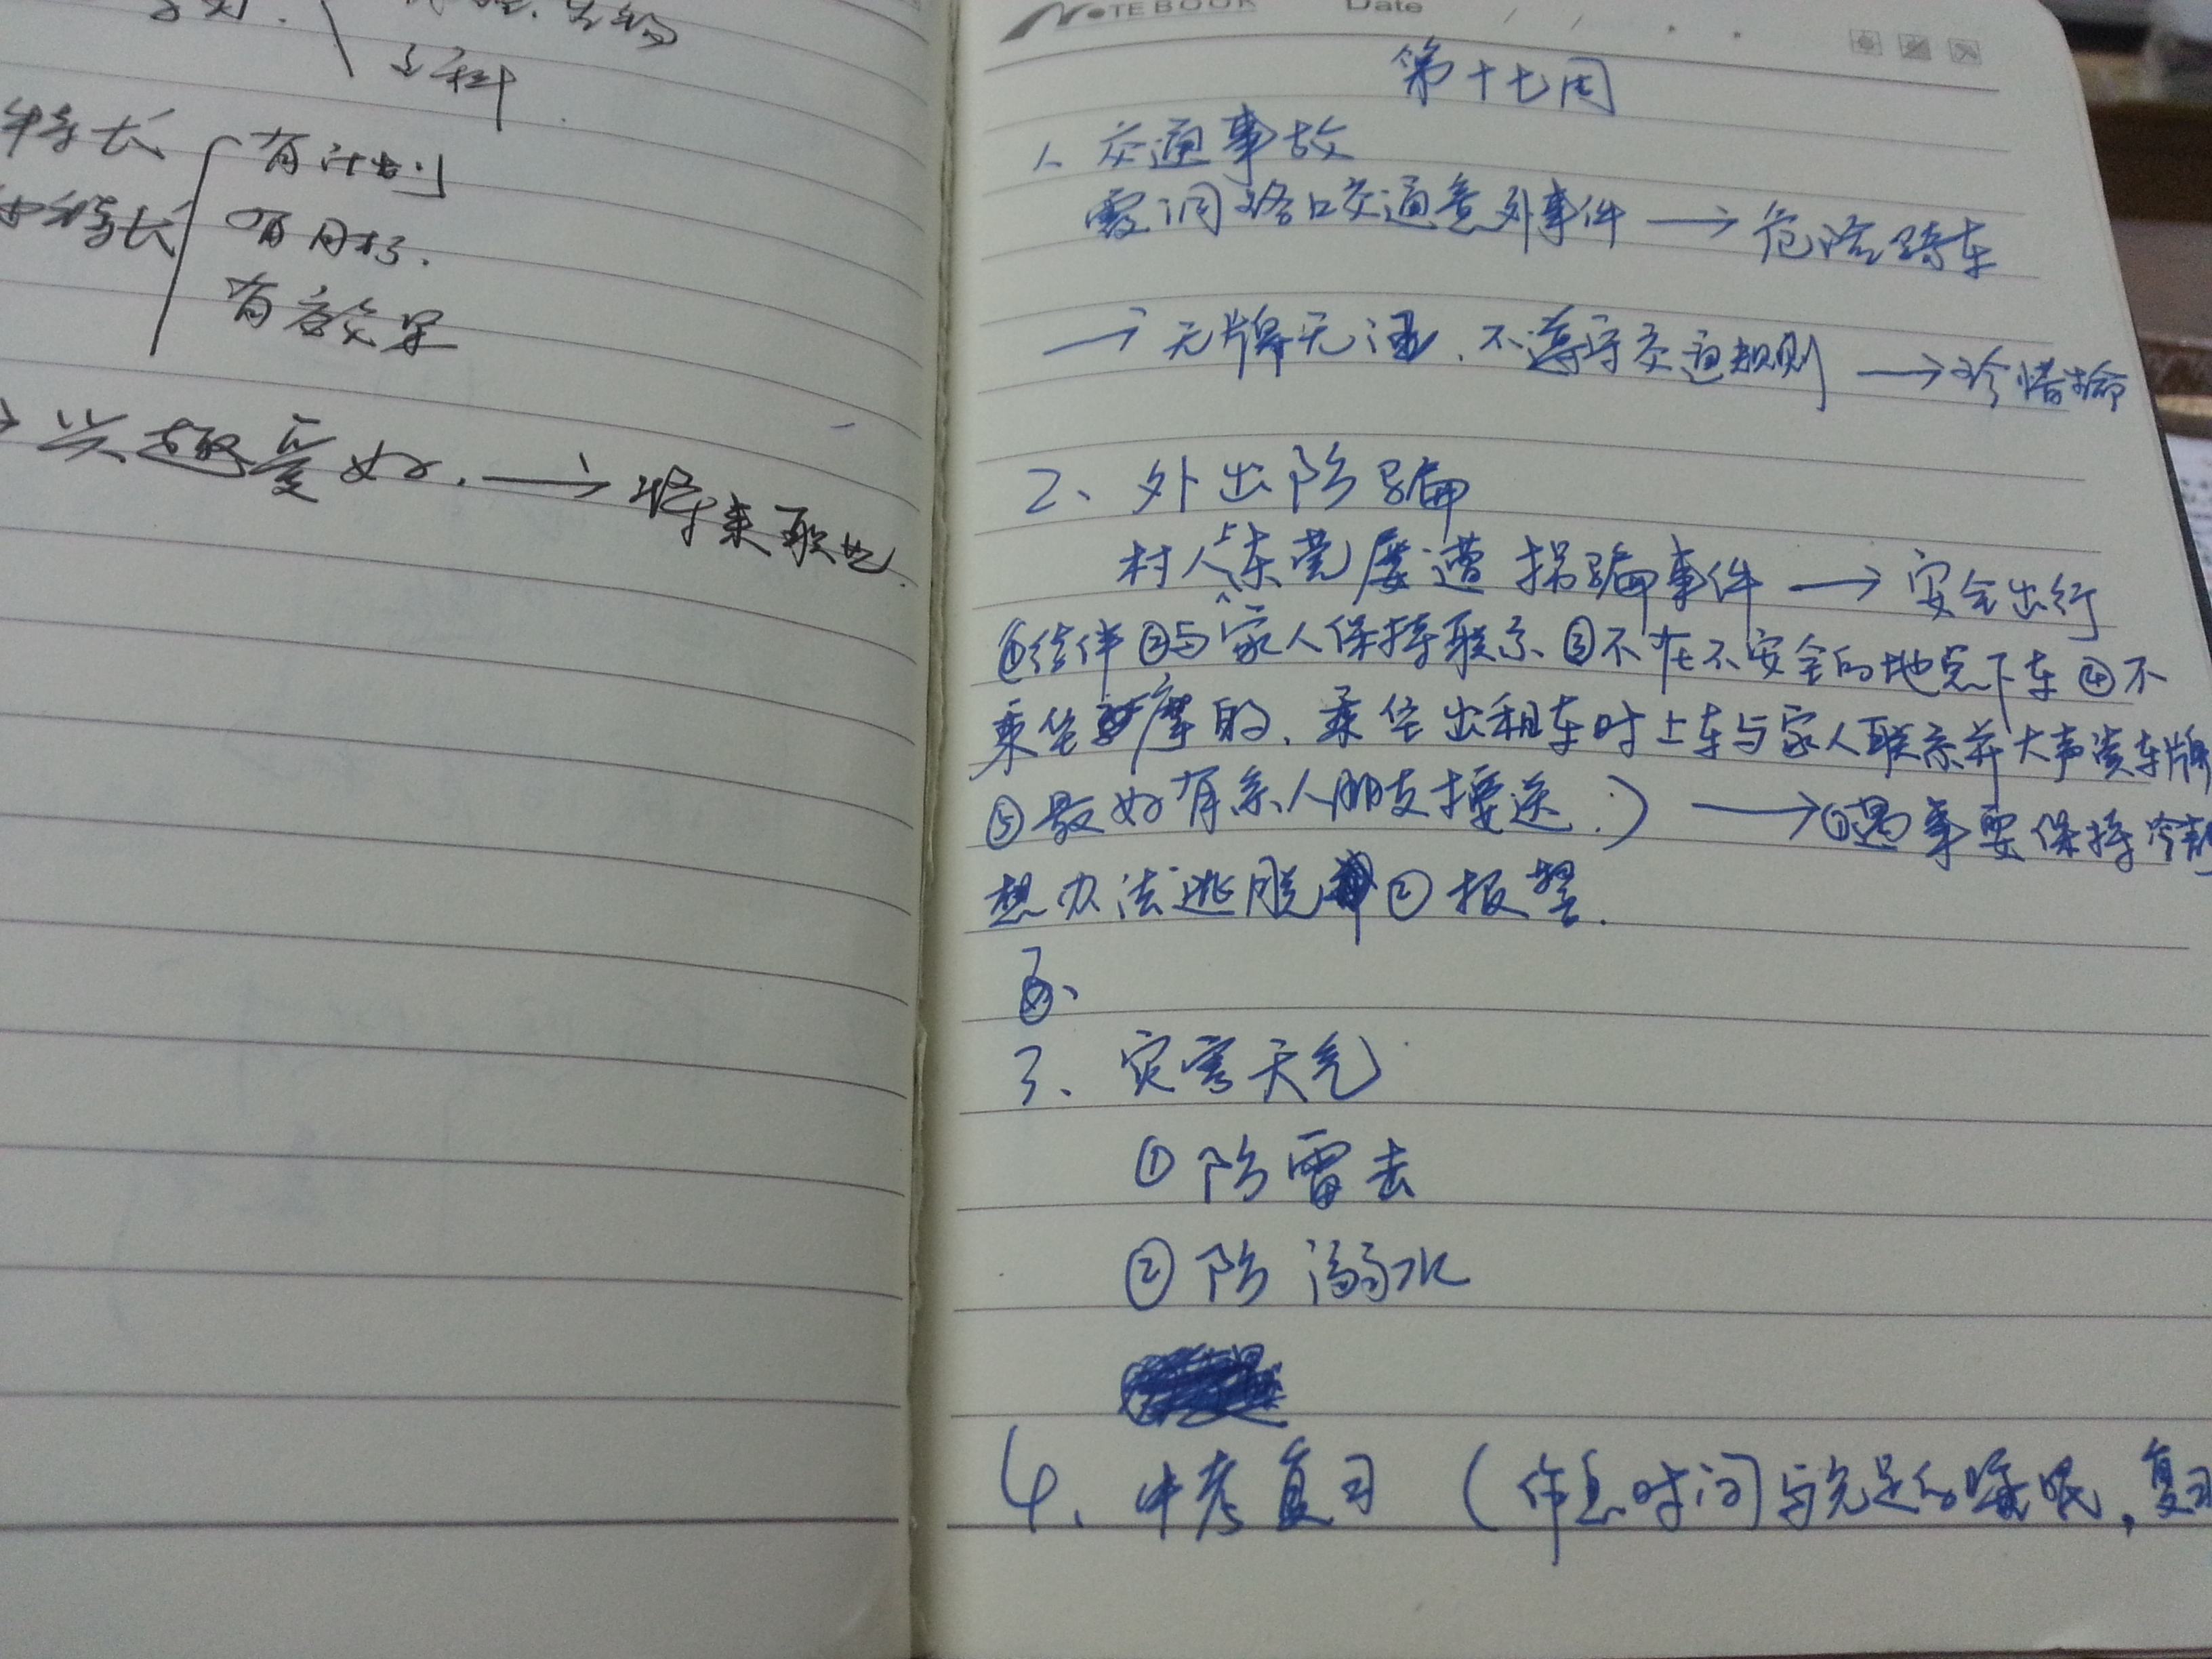 生物
特长
有计划
特长
有目标.
有效果
兴趣爱好. → 将来职业.
NOTEBOOK Date / /
第十七周
1、交通事故
霞洞路口交通意外事件 → 危险骑车
→ 无牌无证、不遵守交通规则 → 珍惜
2、外出防骗
村人上东莞屡遭拐骗事件 → 安全出行
①结伴 ②与家人保持联系 ③不在不安全的地点下车 ④不
乘坐摩的、乘坐出租车时上车与家人联系并大声读车牌
⑤最好有亲人朋友接送.) → ①遇事要保持冷静
想办法逃脱 ②报警.
3、灾害天气
①防雷击
②防溺水
4、中考复习 (作息时间与充足的睡眠,复习